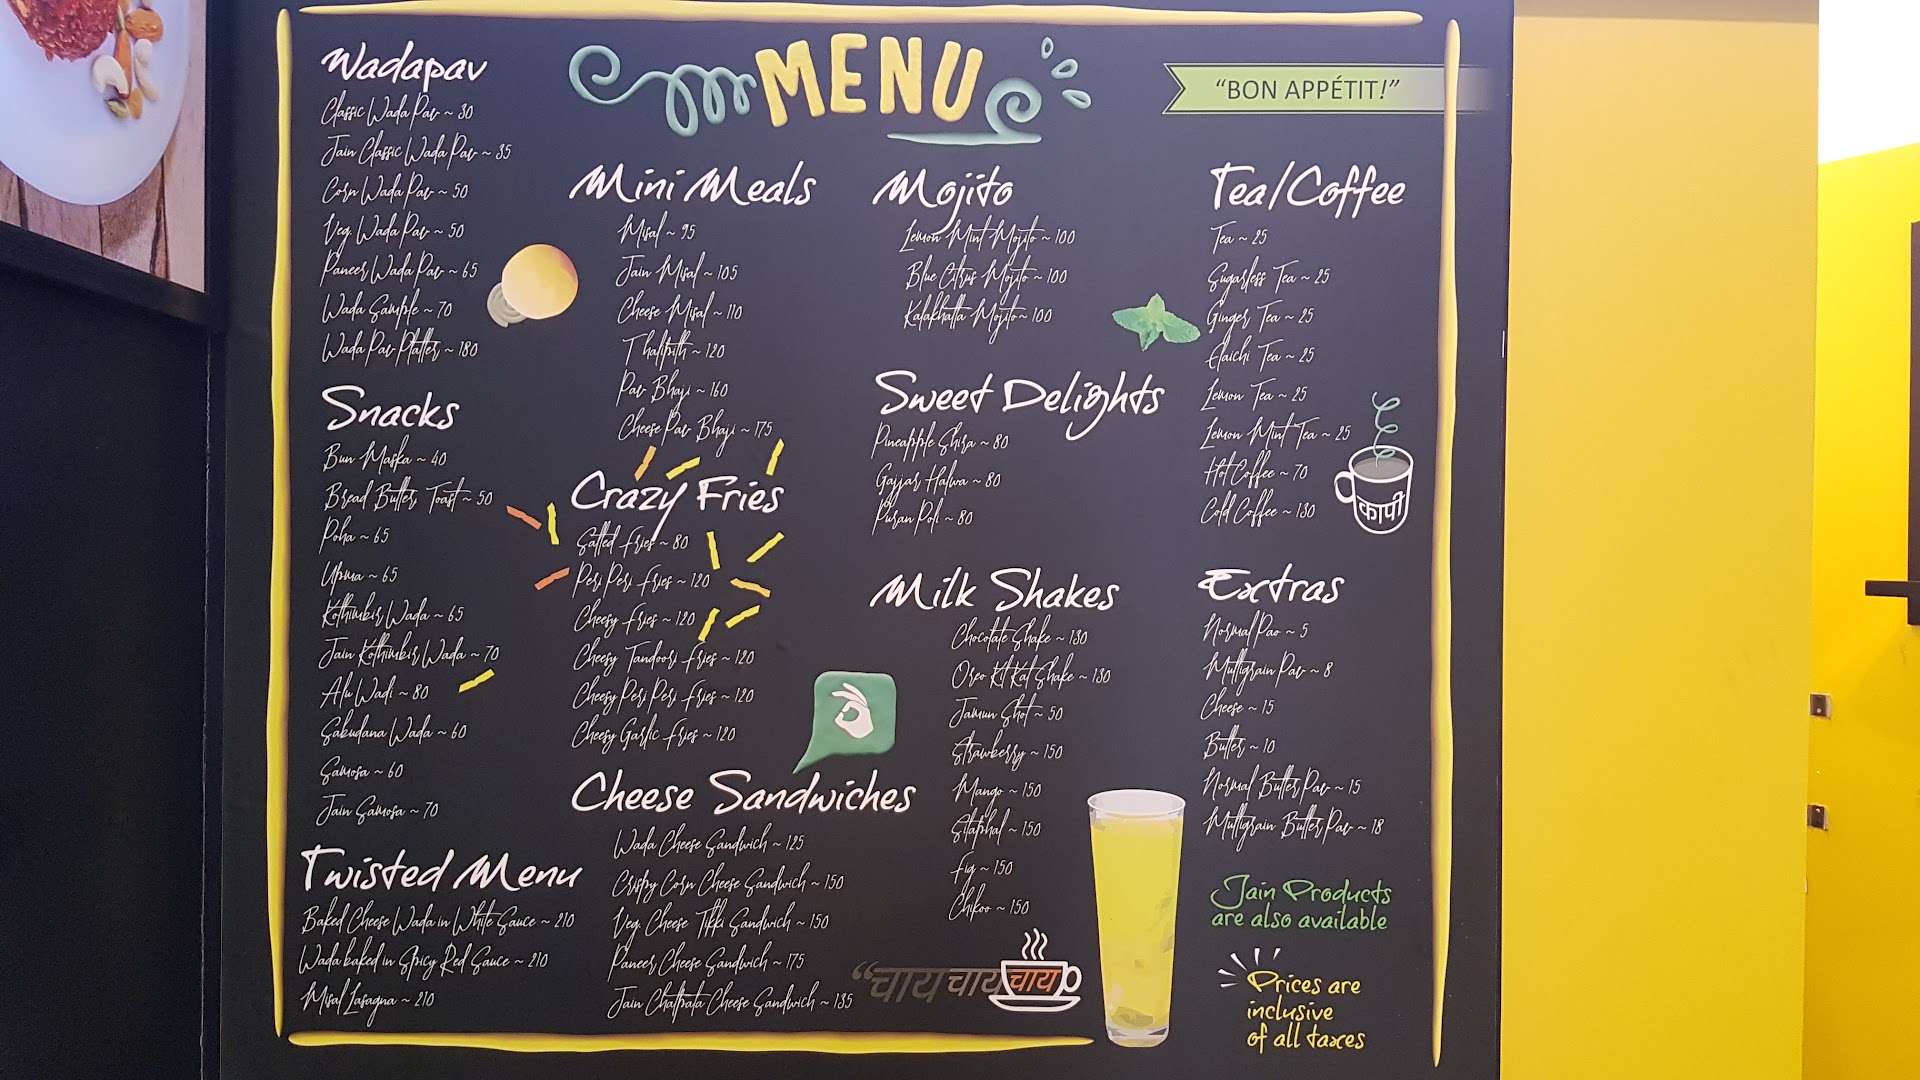 MENU
"BON APPÉTIT!"
Wadapav
Classic Wada Pav ~ 30
Jain Classic Wada Pav ~ 35
Corn Wada Pav ~ 50
Veg. Wada Pav ~ 50
Paneer Wada Pav ~ 65
Wada Sample ~ 70
Wada Pav Platter ~ 180
Snacks
Bun Maska ~ 40
Bread Butter Toast ~ 50
Poha ~ 65
Upma ~ 65
Kothimbir Wada ~ 65
Jain Kothimbir Wada ~ 70
Alu Wadi ~ 80
Sabudana Wada ~ 60
Samosa ~ 60
Jain Samosa ~ 70
Twisted Menu
Baked Cheese Wada in White Sauce ~ 210
Wada baked in Spicy Red Sauce ~ 210
Misal Lasagna ~ 210
Mini Meals
Misal ~ 95
Jain Misal ~ 105
Cheese Misal ~ 110
Thalipith ~ 120
Pav Bhaji ~ 160
Cheese Pav Bhaji ~ 175
Crazy Fries
Salted Fries ~ 80
Peri Peri Fries ~ 120
Cheesy Fries ~ 120
Cheesy Tandoori Fries ~ 120
Cheesy Peri Peri Fries ~ 120
Cheesy Garlic Fries ~ 120
Cheese Sandwiches
Wada Cheese Sandwich ~ 125
Crispy Corn Cheese Sandwich ~ 150
Veg. Cheese Tikki Sandwich ~ 150
Paneer Cheese Sandwich ~ 175
Jain Chatpata Cheese Sandwich ~ 135
Mojito
Lemon Mint Mojito ~ 100
Blue Citrus Mojito ~ 100
Kalakhatta Mojito ~ 100
Sweet Delights
Pineapple Shira ~ 80
Gajjar Halwa ~ 80
Puran Poli ~ 80
Milk Shakes
Chocolate Shake ~ 130
Oreo Kit Kat Shake ~ 130
Jamun Shot ~ 50
Strawberry ~ 150
Mango ~ 150
Sitaphal ~ 150
Fig ~ 150
Chikoo ~ 150
"चाय चाय चाय
Tea/Coffee
Tea ~ 25
Sugarless Tea ~ 25
Ginger Tea ~ 25
Elaichi Tea ~ 25
Lemon Tea ~ 25
Lemon Mint Tea ~ 25
Hot Coffee ~ 70
Cold Coffee ~ 130
कापी
Extras
Normal Pao ~ 5
Multigrain Pav ~ 8
Cheese ~ 15
Butter ~ 10
Normal Butter Pav ~ 15
Multigrain Butter Pav ~ 18
Jain Products
are also available
Prices are
inclusive
of all taxes